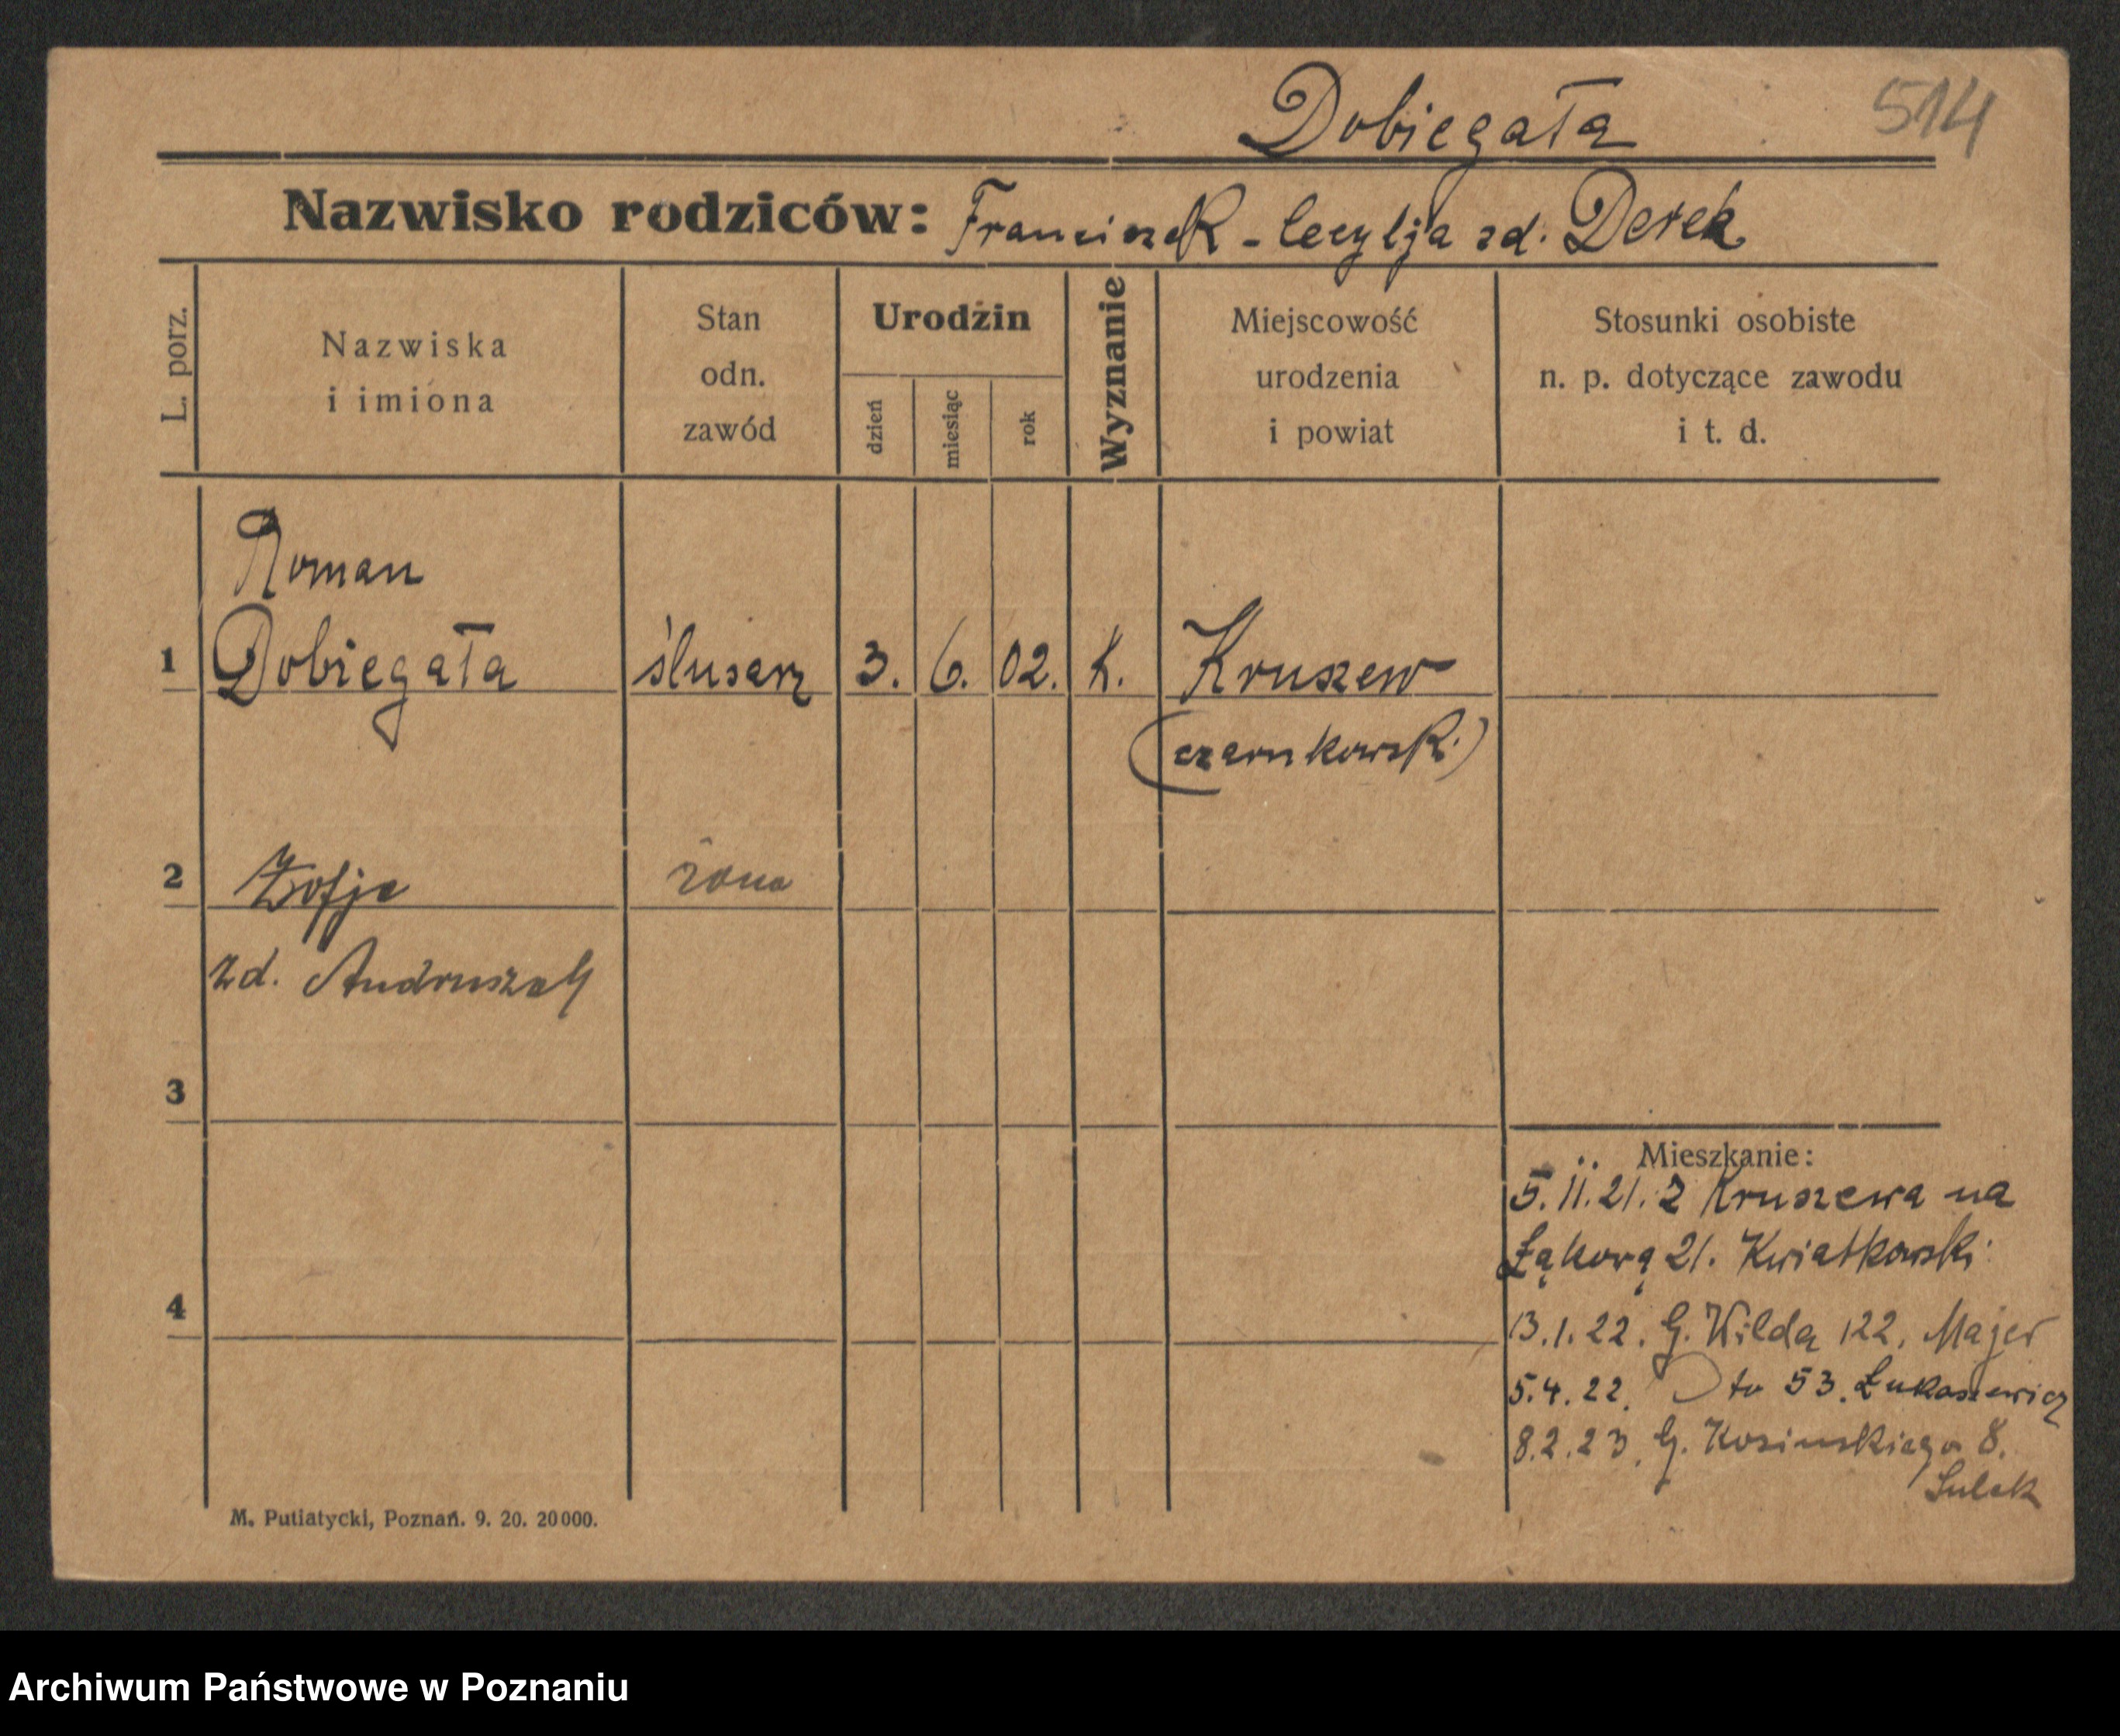 Dobiegała
514
Nazwisko rodziców: Franciszek - Cecylja zd. Derek
L. porz.
Nazwiska
i imiona
Stan
odn.
zawód
Urodzin
dzień
miesiąc
rok
Wyznanie
Miejscowość
urodzenia
i powiat
Stosunki osobiste
n. p. dotyczące zawodu
i t. d.
Roman
1 Dobiegała ślusarz 3. 6. 02. k. Kruszew
(czarnkowski)
2 Zofja żona
zd. Andruszak
3
Mieszkanie:
5.11.21. z Kruszewa na
Łąkową 21. Kwiatkowski
4
13.1.22. G. Wilda 122, Majer
5.4.22. Dto 53. Łukaszewicz
8.2.23. G. Kosinskiego 8.
Sulek
M. Putiatycki, Poznań. 9. 20. 20000.
Archiwum Państwowe w Poznaniu